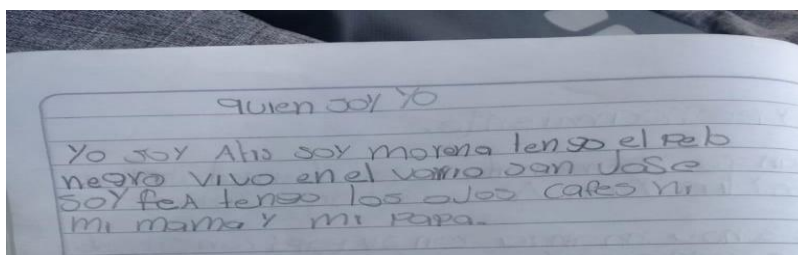 quien soy yo
Yo soy Alis soy morena tengo el pelo
negro vivo en el varrio san Jose
soy feA tengo los ojos cafes ni
mi mama y mi papa.